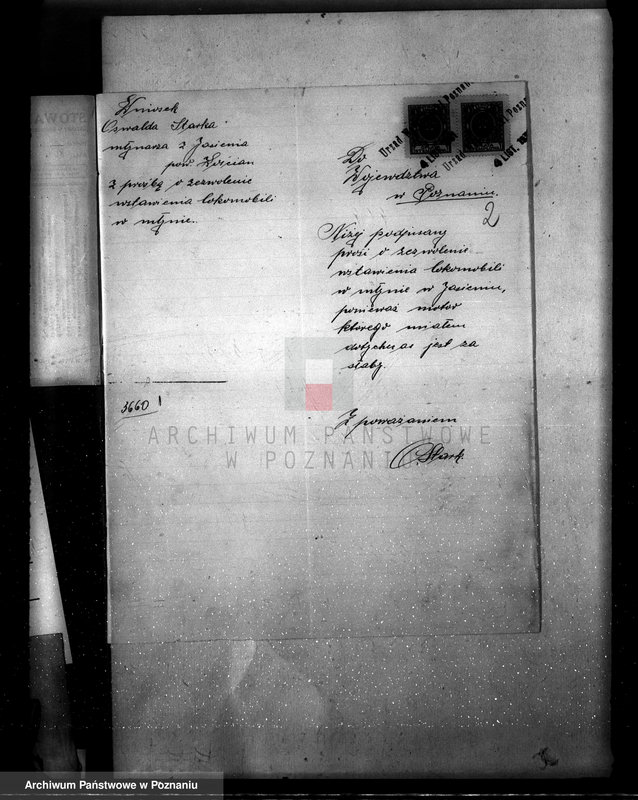 Wniosek
Oswalda Starka
młynarza z Jasienia
pow. Kościan
z prośbą o zezwolenie
wstawienia lokomobili
w młynie.
3660
Do
Wojewdztwa
w Poznaniu.
2
Niżej podpisany
prosi o zezwolenie
wstawienia lokomobili
w młynie w Jasieniu,
ponieważ motor
którego miałem
dotychczas jest za
słaby.
Z poważaniem
O. Stark.
ARCHIWUM PAŃSTWOWE
W POZNANIU
Archiwum Państwowe w Poznaniu